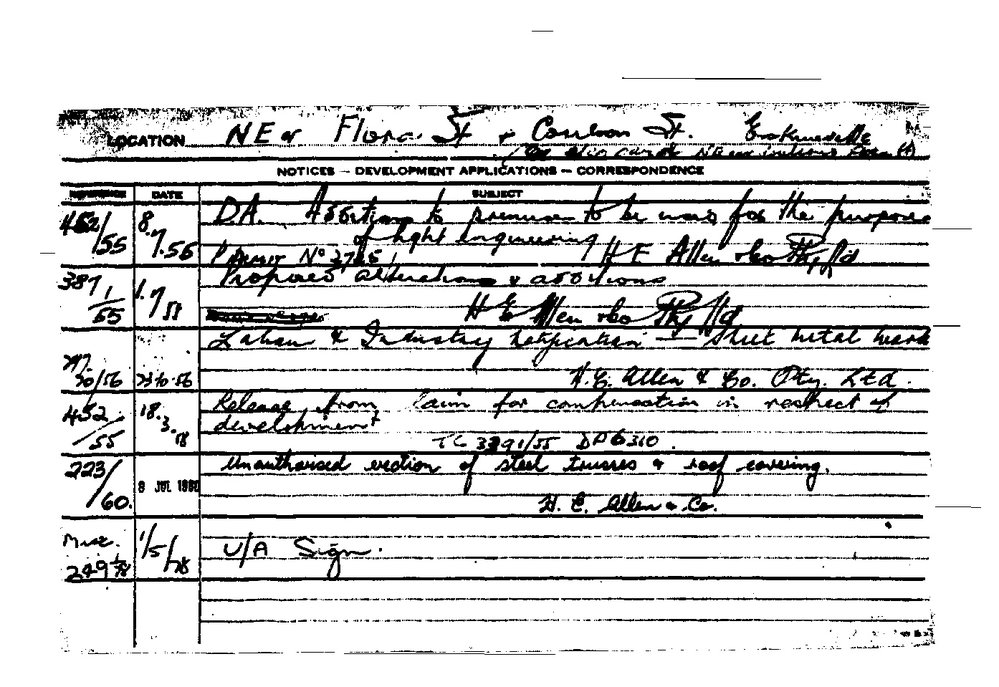 LOCATION NE cr Flora St & Coulson St. Erskineville
See also card NE
NOTICES — DEVELOPMENT APPLICATIONS — CORRESPONDENCE
REFERENCE DATE SUBJECT
452/55 8.7.56 D.A. Additions to premises to be used for the purpose
of light engineering
Permit No 3785 H E Allen & Co Pty Ltd
387/55 1.7 Proposed alterations & additions
H E Allen & Co Pty Ltd
Labour & Industry notification — Sheet metal work
30/56 23.10.56 H.E. Allen & Co. Pty. Ltd.
452/55 18.3.58 Release from claim for compensation in respect of
development
TC 3391/55 DP6310.
223/60. 8 JUL 1960 Unauthorised erection of steel trusses & roof covering.
H. E. Allen & Co.
Misc. 249/78 1/5/78 U/A Sign.